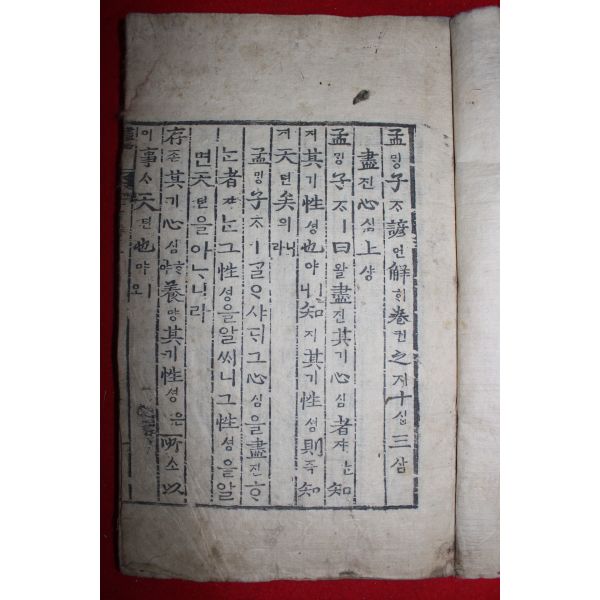 孟밍子ᄌᆞ諺언解ᄒᆡ卷권之지十십三삼
盡진心심上샹
孟밍子ᄌᆞㅣ曰왈盡진其기心심者쟈ᄂᆞᆫ知
지其기性셩也야ㅣ니知지其기性셩則즉知
지天텬矣의니라
孟밍子ᄌᆞㅣᄀᆞᆯᄋᆞ샤ᄃᆡ그心심을盡진ᄒᆞ
ᄂᆞᆫ者쟈ᄂᆞᆫ그性셩을알씨니그性셩을알
면天텬을아ᄂᆞ니라
存존其기心심ᄒᆞ야養양其기性셩은所소以
이事ᄉᆞ天텬也야ㅣ오